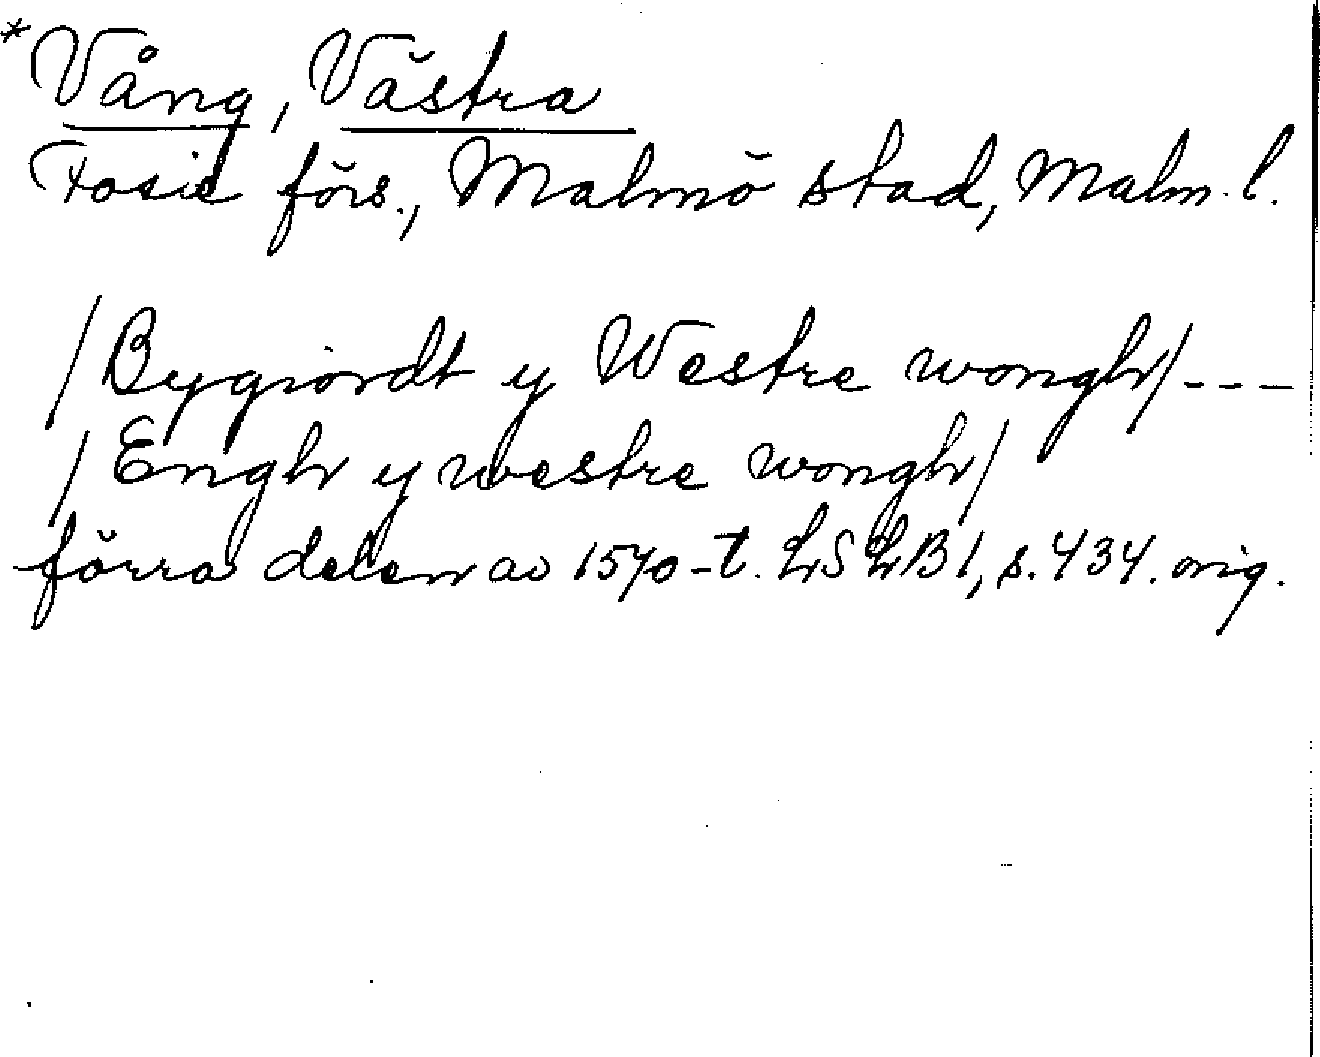 *Vång, Västra
Fosie förs., Malmö stad, Malm. l.
/Bygiördt y Westre wongh/---
/Engh y westre wongh/
förra delen av 1570-t. LSLB1, s. 434. orig.